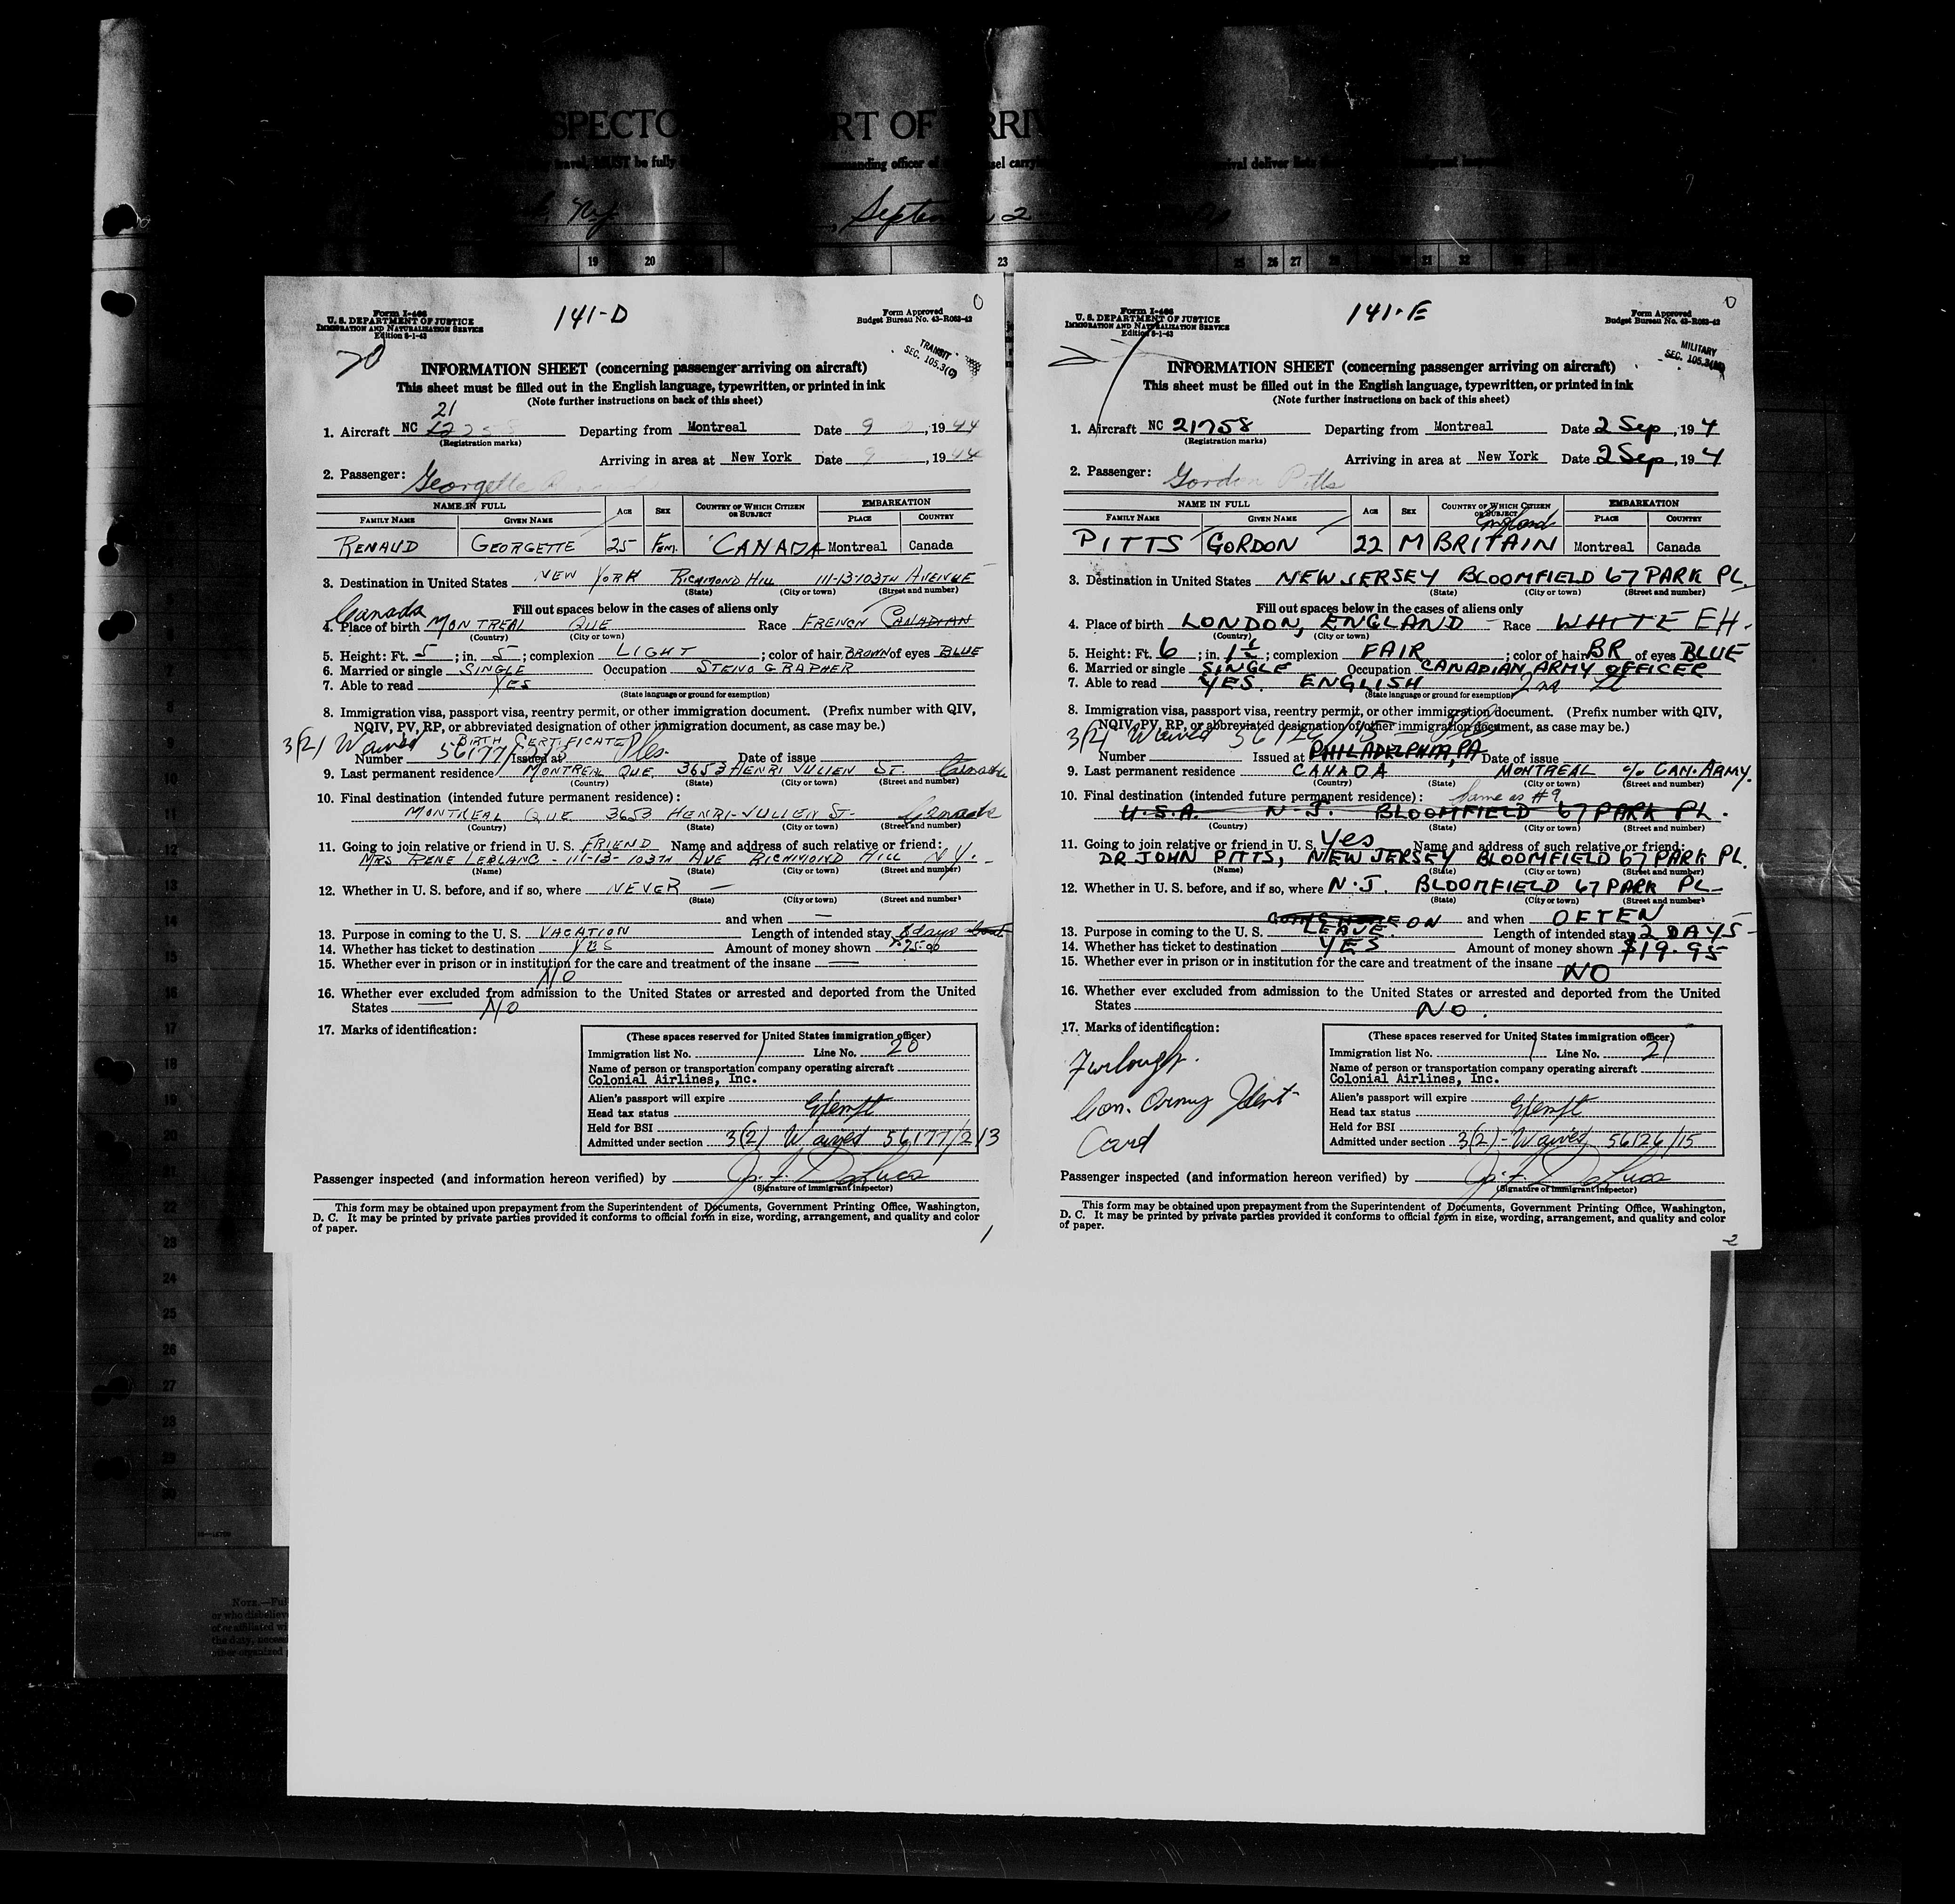 SPECTO RT OF RRI
travel, MUST be fully manding officer of sel carry ival deliver
Septem 2
19 20 23 25 26 27 28 32
141-D
0
Form I-466
U. S. DEPARTMENT OF JUSTICE
IMMIGRATION AND NATURALIZATION SERVICE
Edition 8-1-43
Form Approved
Budget Bureau No. 43-R063-42
20
TRANSIT
SEC. 105.3(
INFORMATION SHEET (concerning passenger arriving on aircraft)
This sheet must be filled out in the English language, typewritten, or printed in ink
(Note further instructions on back of this sheet)
21
1. Aircraft NC Departing from Montreal Date 9 , 1944
(Registration marks)
Arriving in area at New York Date 9 , 1944
2. Passenger: Georgette
NAME IN FULL AGE SEX COUNTRY OF WHICH CITIZEN OR SUBJECT EMBARKATION
FAMILY NAME GIVEN NAME PLACE COUNTRY
RENAUD GEORGETTE 25 FEM. CANADA Montreal Canada
3. Destination in United States NEW YORK RICHMOND HILL 111-13-103TH AVENUE
(State) (City or town) (Street and number)
Canada Fill out spaces below in the cases of aliens only
4. Place of birth MONTREAL QUE Race FRENCH CANADIAN
(Country) (City or town)
5. Height: Ft. 5 ; in. 5 ; complexion LIGHT ; color of hair BROWN of eyes BLUE
6. Married or single SINGLE Occupation STENOGRAPHER
7. Able to read YES
(State language or ground for exemption)
8. Immigration visa, passport visa, reentry permit, or other immigration document. (Prefix number with QIV,
NQIV, PV, RP, or abbreviated designation of other immigration document, as case may be.)
3(2) Waived BIRTH CERTIFICATE
Number 56177/213 Issued at Date of issue
9. Last permanent residence MONTREAL QUE, 3653 HENRI JULIEN ST. Canada
(Country) (State) (City or town) (Street and number)
10. Final destination (intended future permanent residence):
MONTREAL QUE 3653 HENRI-JULIEN ST- Canada
(Country) (State) (City or town) (Street and number)
11. Going to join relative or friend in U. S. FRIEND Name and address of such relative or friend:
MRS RENE LEBLANC - 111-13- 103TH AVE RICHMOND HILL N Y.
(Name) (State) (City or town) (Street and number)
12. Whether in U. S. before, and if so, where NEVER —
(State) (City or town) (Street and number)
and when —
13. Purpose in coming to the U. S. VACATION Length of intended stay 8 days
14. Whether has ticket to destination YES Amount of money shown 75.00
15. Whether ever in prison or in institution for the care and treatment of the insane —
NO
16. Whether ever excluded from admission to the United States or arrested and deported from the United
States NO
17. Marks of identification:
(These spaces reserved for United States immigration officer)
Immigration list No. 1 Line No. 20
Name of person or transportation company operating aircraft
Colonial Airlines, Inc.
Alien's passport will expire
Head tax status Exempt
Held for BSI
Admitted under section 3(2) Waived 56177/213
Passenger inspected (and information hereon verified) by J. F. DeLuca
(Signature of immigrant inspector)
This form may be obtained upon prepayment from the Superintendent of Documents, Government Printing Office, Washington,
D. C. It may be printed by private parties provided it conforms to official form in size, wording, arrangement, and quality and color
of paper.
1
141-E
0
Form I-466
U. S. DEPARTMENT OF JUSTICE
IMMIGRATION AND NATURALIZATION SERVICE
Edition 8-1-43
Form Approved
Budget Bureau No. 43-R063-42
MILITARY
SEC. 105.3(
INFORMATION SHEET (concerning passenger arriving on aircraft)
This sheet must be filled out in the English language, typewritten, or printed in ink
(Note further instructions on back of this sheet)
1. Aircraft NC 21758 Departing from Montreal Date 2 Sep , 194
(Registration marks)
Arriving in area at New York Date 2 Sep , 194
2. Passenger: Gordon Pitts
NAME IN FULL AGE SEX COUNTRY OF WHICH CITIZEN OR SUBJECT EMBARKATION
FAMILY NAME GIVEN NAME England PLACE COUNTRY
PITTS GORDON 22 M BRITAIN Montreal Canada
3. Destination in United States NEW JERSEY BLOOMFIELD 67 PARK PL.
(State) (City or town) (Street and number)
Fill out spaces below in the cases of aliens only
4. Place of birth LONDON, ENGLAND Race WHITE EH.
(Country) (City or town)
5. Height: Ft. 6 ; in. 1½ ; complexion FAIR ; color of hair BR of eyes BLUE
6. Married or single SINGLE Occupation CANADIAN ARMY OFFICER
7. Able to read YES. ENGLISH 2nd Lt
(State language or ground for exemption)
8. Immigration visa, passport visa, reentry permit, or other immigration document. (Prefix number with QIV,
NQIV, PV, RP, or abbreviated designation of other immigration document, as case may be.)
3(2) Waived 56126/15
Number Issued at PHILADELPHIA, PA Date of issue
9. Last permanent residence CANADA MONTREAL % CAN. ARMY.
(Country) (State) (City or town) (Street and number)
10. Final destination (intended future permanent residence): Same as #9
U.S.A. N.J. BLOOMFIELD 67 PARK PL.
(Country) (State) (City or town) (Street and number)
11. Going to join relative or friend in U. S. Yes Name and address of such relative or friend:
DR. JOHN PITTS, NEW JERSEY BLOOMFIELD 67 PARK PL.
(Name) (State) (City or town) (Street and number)
12. Whether in U. S. before, and if so, where N.J. BLOOMFIELD 67 PARK PL
(State) (City or town) (Street and number)
GOING HOME ON and when OFTEN
13. Purpose in coming to the U. S. LEAVE. Length of intended stay 2 DAYS
14. Whether has ticket to destination YES Amount of money shown $19.95
15. Whether ever in prison or in institution for the care and treatment of the insane
NO
16. Whether ever excluded from admission to the United States or arrested and deported from the United
States NO.
17. Marks of identification:
Furlough.
Can. Army Ident-
Card
(These spaces reserved for United States immigration officer)
Immigration list No. 1 Line No. 21
Name of person or transportation company operating aircraft
Colonial Airlines, Inc.
Alien's passport will expire
Head tax status Exempt
Held for BSI
Admitted under section 3(2)-Waived 56126/15
Passenger inspected (and information hereon verified) by J. F. DeLuca
(Signature of immigrant inspector)
This form may be obtained upon prepayment from the Superintendent of Documents, Government Printing Office, Washington,
D. C. It may be printed by private parties provided it conforms to official form in size, wording, arrangement, and quality and color
of paper.
2